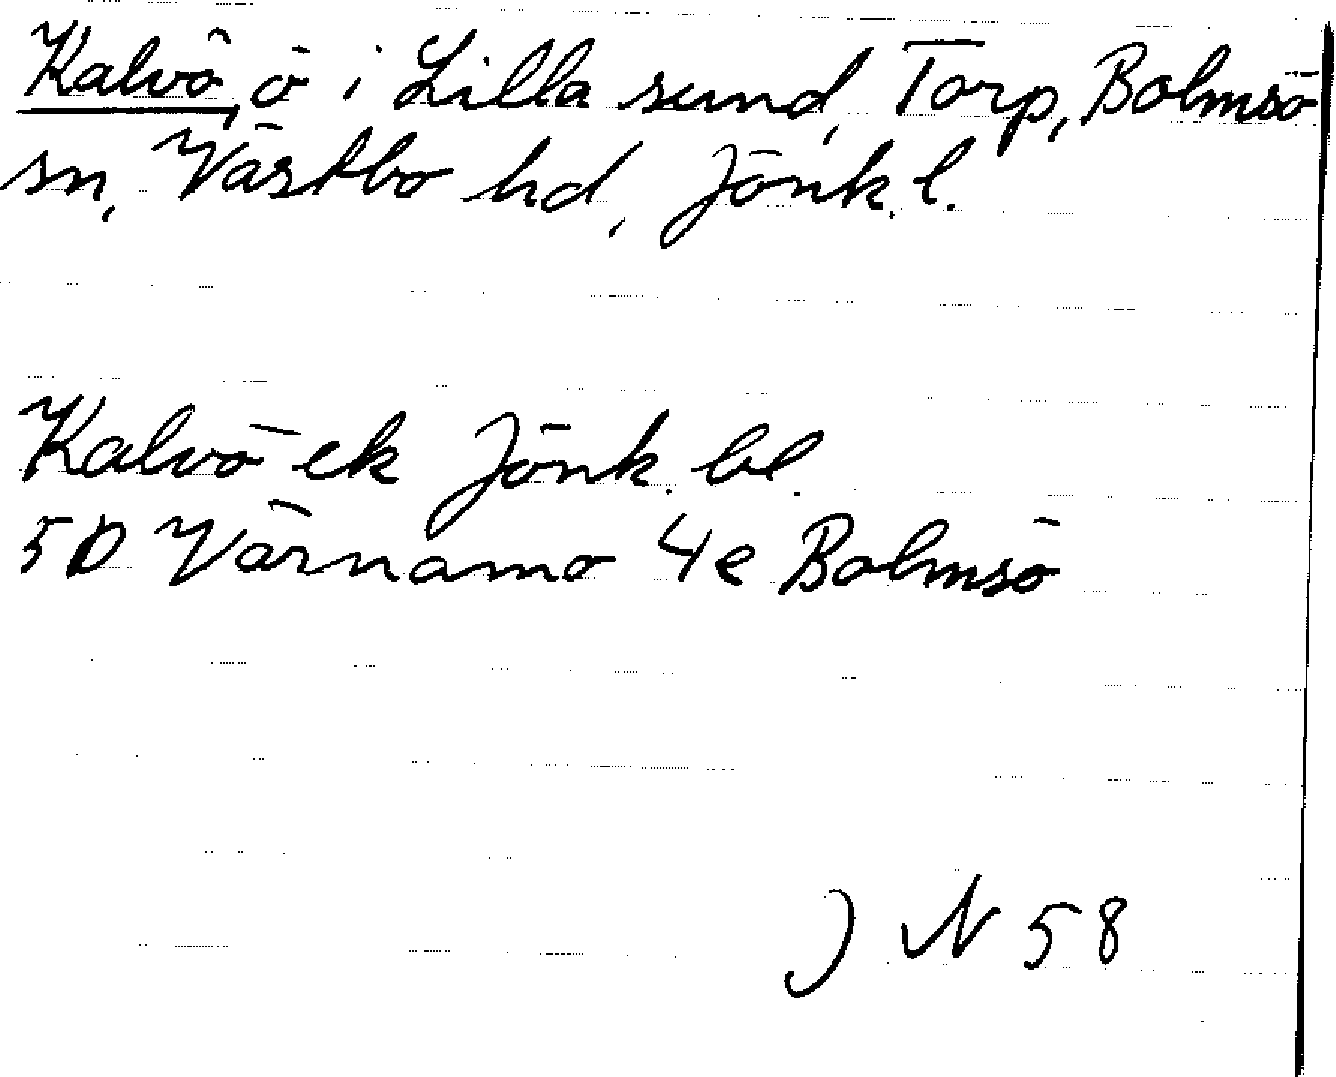 Kalvö, ö i Lilla sund, Torp, Bolmsö
sn, Västbo hd, Jönk. l.
Kalvö ek Jönk. bl.
5D Värnamo 4e Bolmsö
J N 58